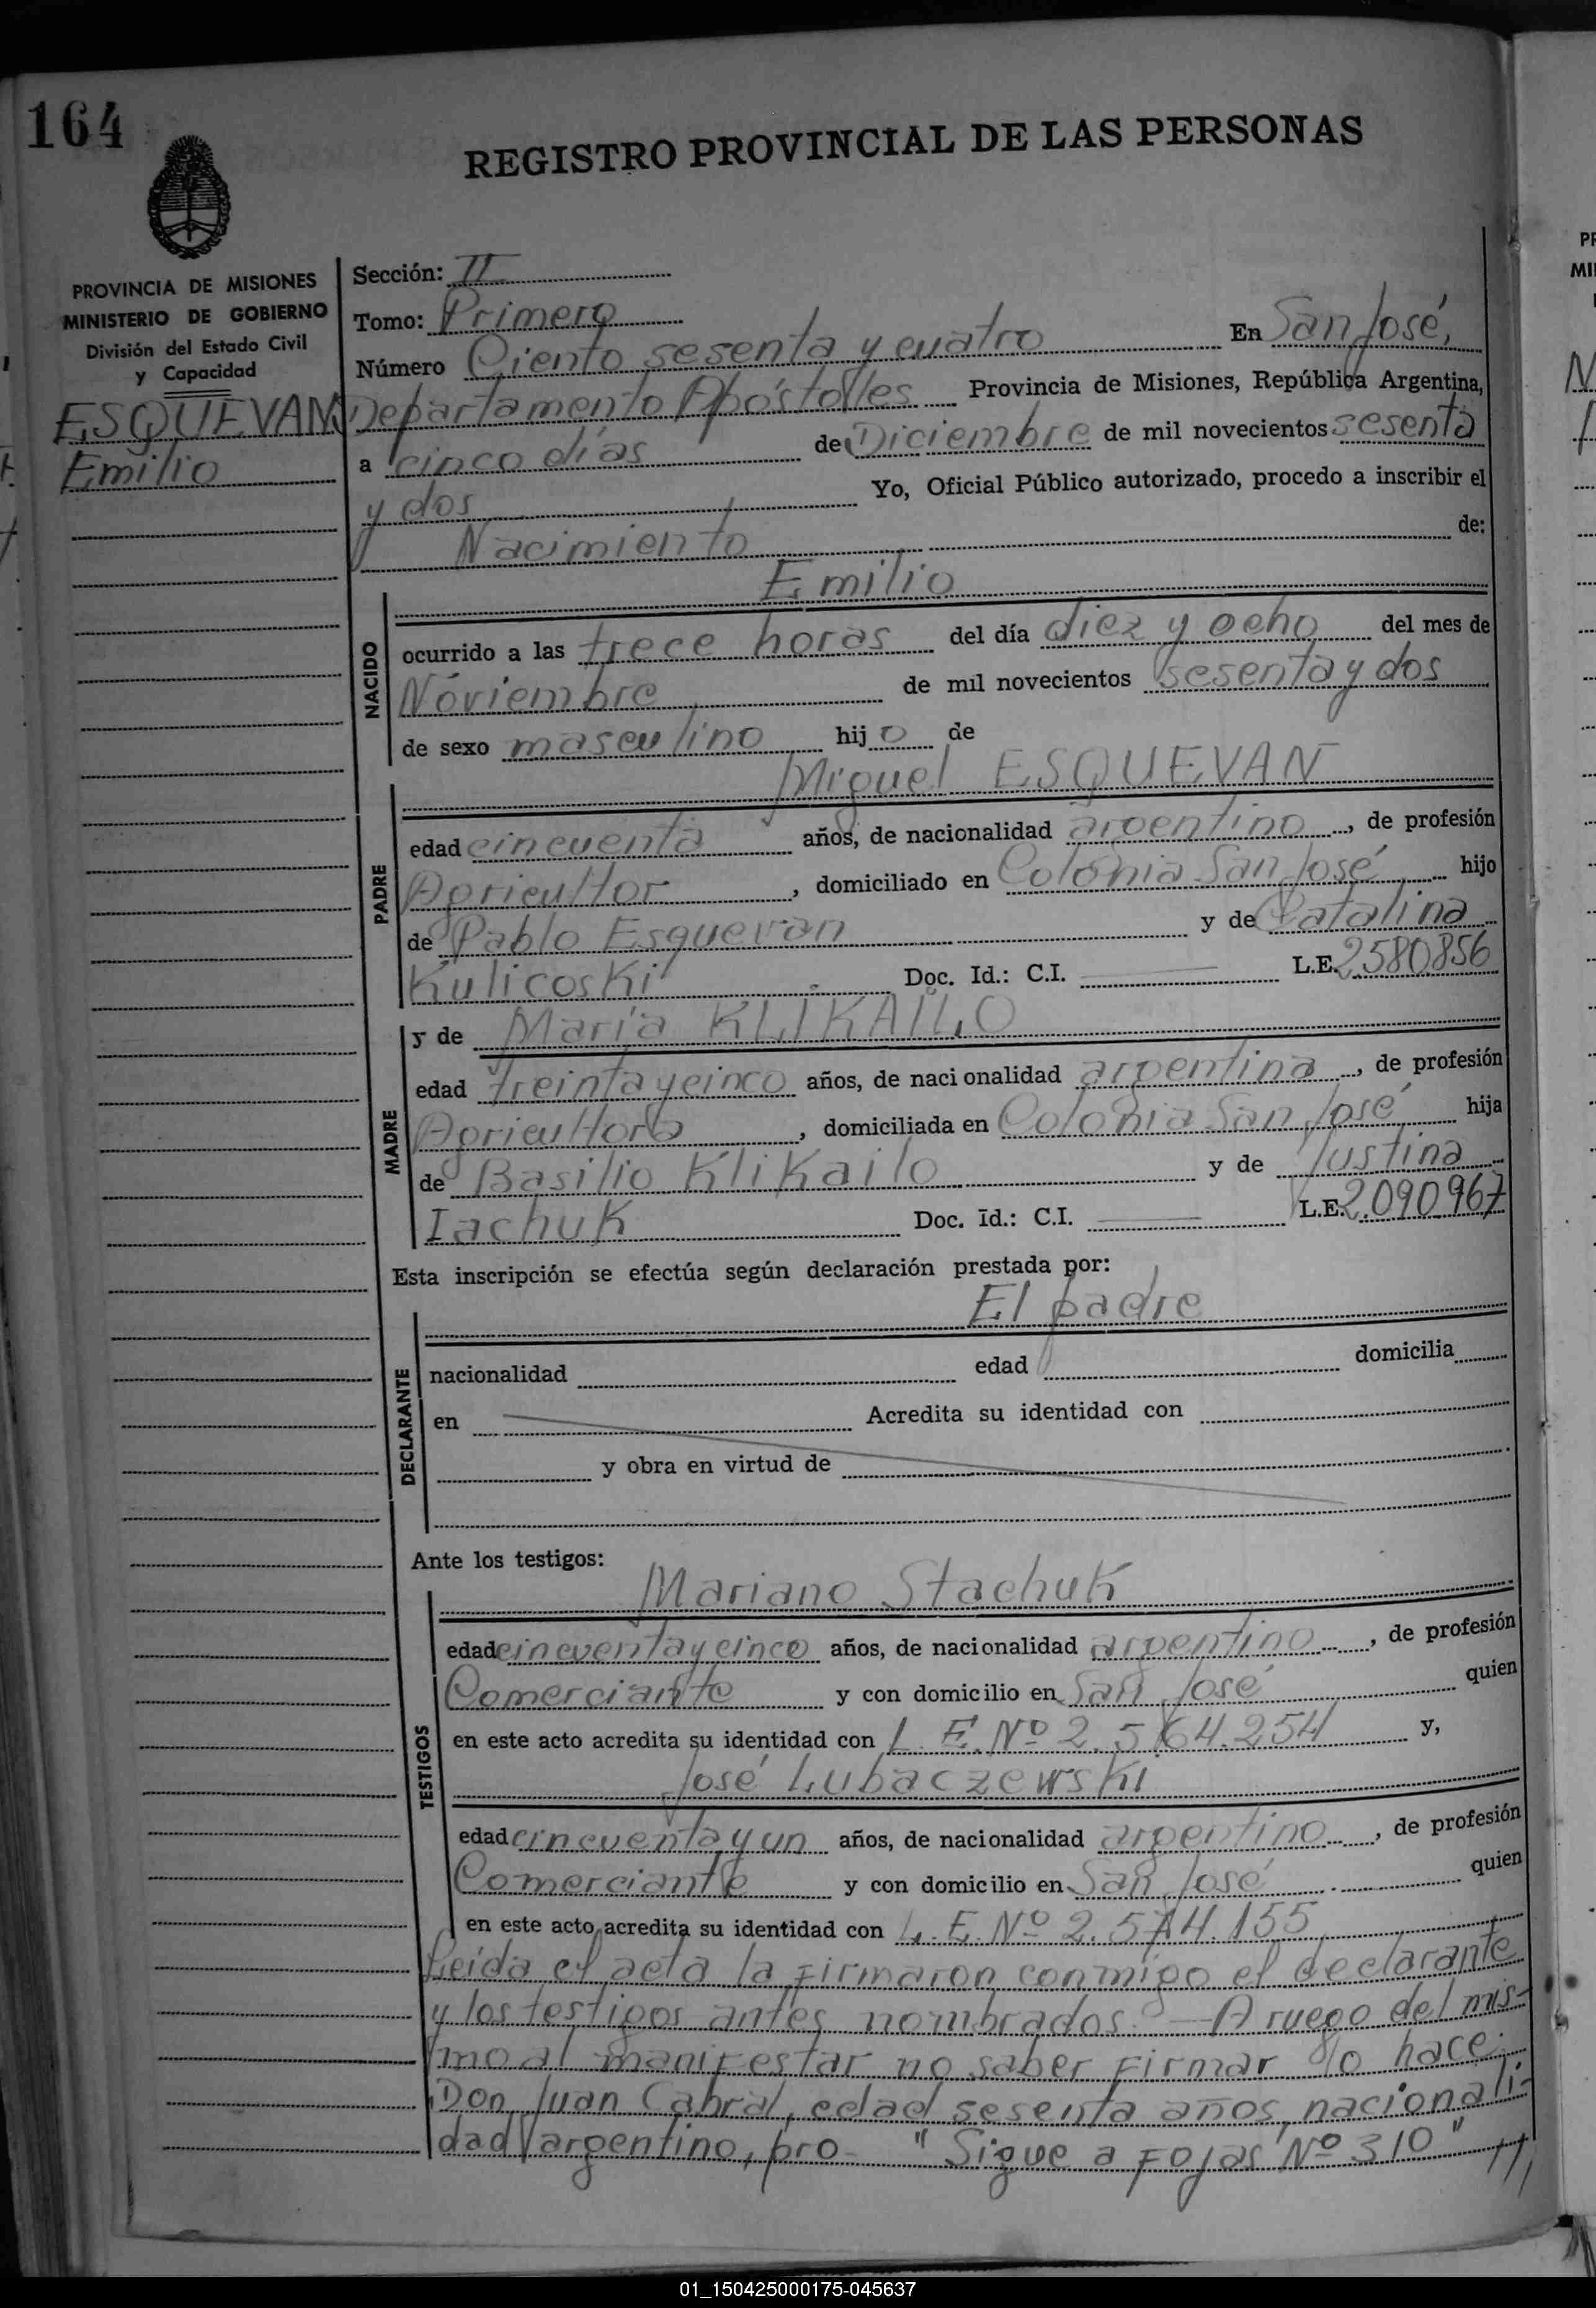 164
REGISTRO PROVINCIAL DE LAS PERSONAS
PROVINCIA DE MISIONES
MINISTERIO DE GOBIERNO
División del Estado Civil
y Capacidad
ESQUEVAN
Emilio
Sección: II
Tomo: Primero
Número Ciento sesenta y cuatro En San José,
Departamento Apóstoles Provincia de Misiones, República Argentina,
a cinco días de Diciembre de mil novecientos sesenta
y dos Yo, Oficial Público autorizado, procedo a inscribir el
Nacimiento de:
Emilio
NACIDO
ocurrido a las trece horas del día diez y ocho del mes de
Noviembre de mil novecientos sesenta y dos
de sexo masculino hijo de
Miguel ESQUEVAN
PADRE
edad cincuenta años, de nacionalidad argentino, de profesión
Agricultor, domiciliado en Colonia San José hijo
de Pablo Esquevan y de Catalina
Kulicoski Doc. Id.: C.I. L.E. 2580856
y de María KLIKAILO
MADRE
edad treinta y cinco años, de nacionalidad argentina, de profesión
Agricultora, domiciliada en Colonia San José hija
de Basilio Klikailo y de Justina
Iachuk Doc. Id.: C.I. L.E. 2.090.967
Esta inscripción se efectúa según declaración prestada por:
El padre
DECLARANTE
nacionalidad edad domicilia
en Acredita su identidad con
y obra en virtud de
Ante los testigos:
Mariano Stachuk
TESTIGOS
edad cincuenta y cinco años, de nacionalidad argentino, de profesión
Comerciante y con domicilio en San José quien
en este acto acredita su identidad con L.E. Nº 2.564.254 y,
José Lubaczewski
edad cincuenta y un años, de nacionalidad argentino, de profesión
Comerciante y con domicilio en San José quien
en este acto acredita su identidad con L.E. Nº 2.574.155
Leída el acta la firmaron conmigo el declarante
y los testigos antes nombrados.- A ruego del mis-
mo al manifestar no saber firmar lo hace
Don Juan Cabral, edad sesenta años, nacionali-
dad argentino, pro- "Sigue a Fojas Nº 310"
01_150425000175-045637